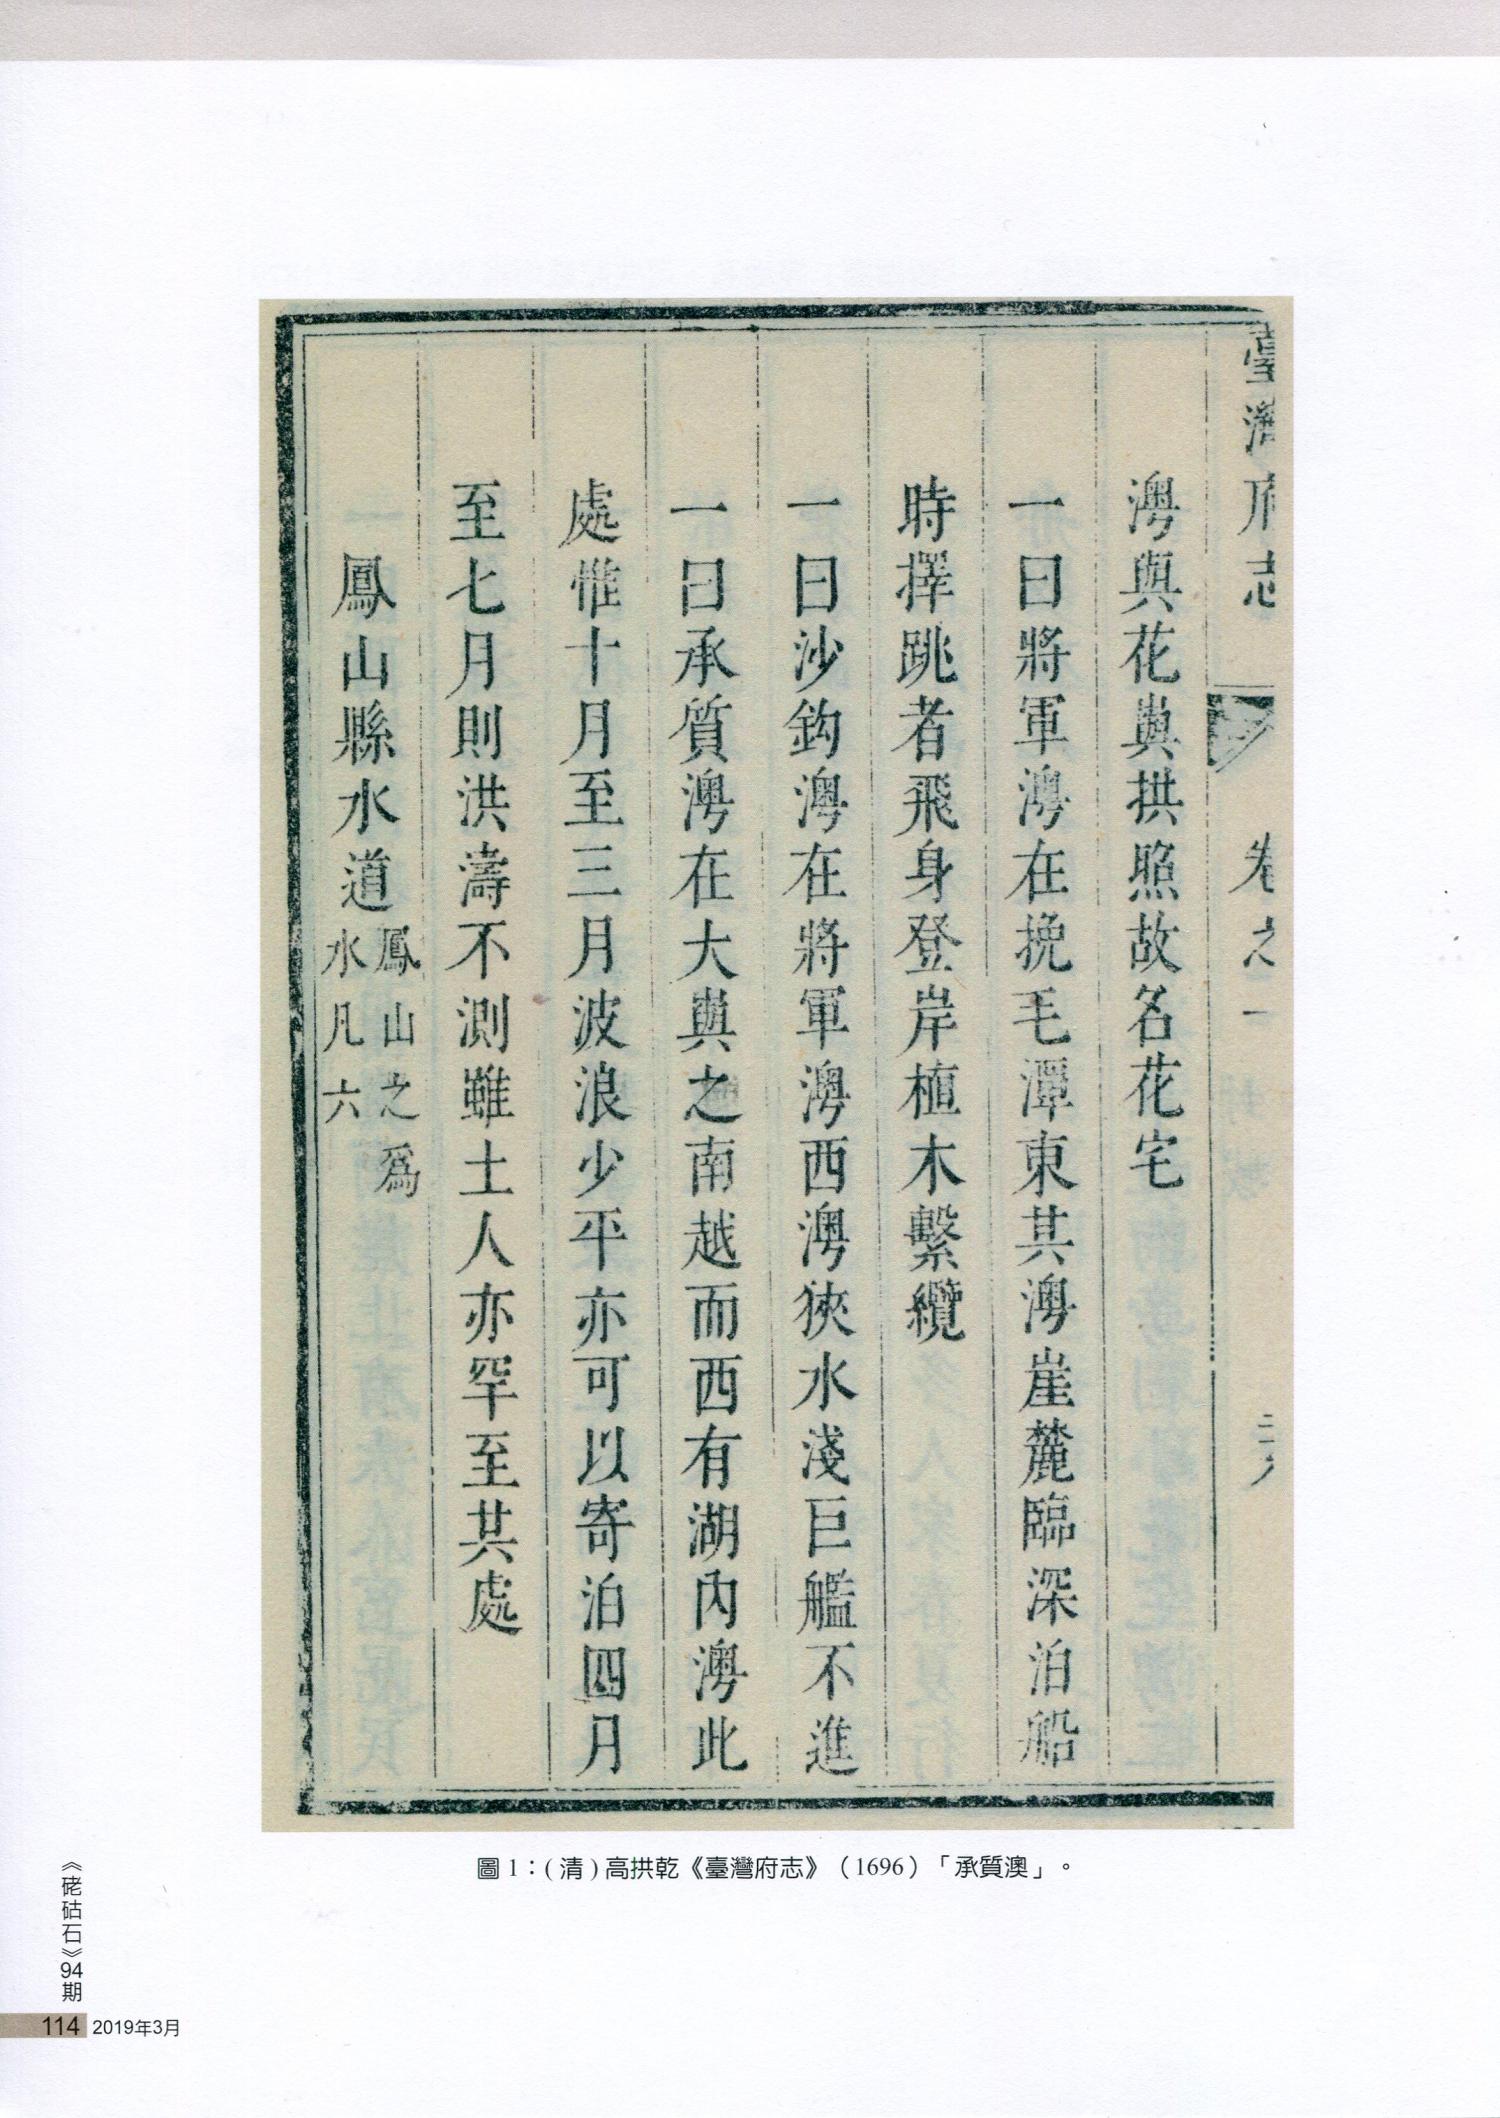 臺灣府志 卷之一
澳與花與拱照故名花宅
一曰將軍澳在挽毛潭東其澳崖麓臨深泊船
時擇跳者飛身登岸植木繫纜
一曰沙鈎澳在將軍澳西澳狹水淺巨艦不進
一曰承質澳在大與之南越而西有湖內澳此
處惟十月至三月波浪少平亦可以寄泊四月
至七月則洪濤不測雖土人亦罕至其處
鳳山縣水道
鳳山之為
水凡六
圖 1：(清)高拱乾《臺灣府志》（1696）「承質澳」。
《硓𥑮石》94期
114 2019年3月